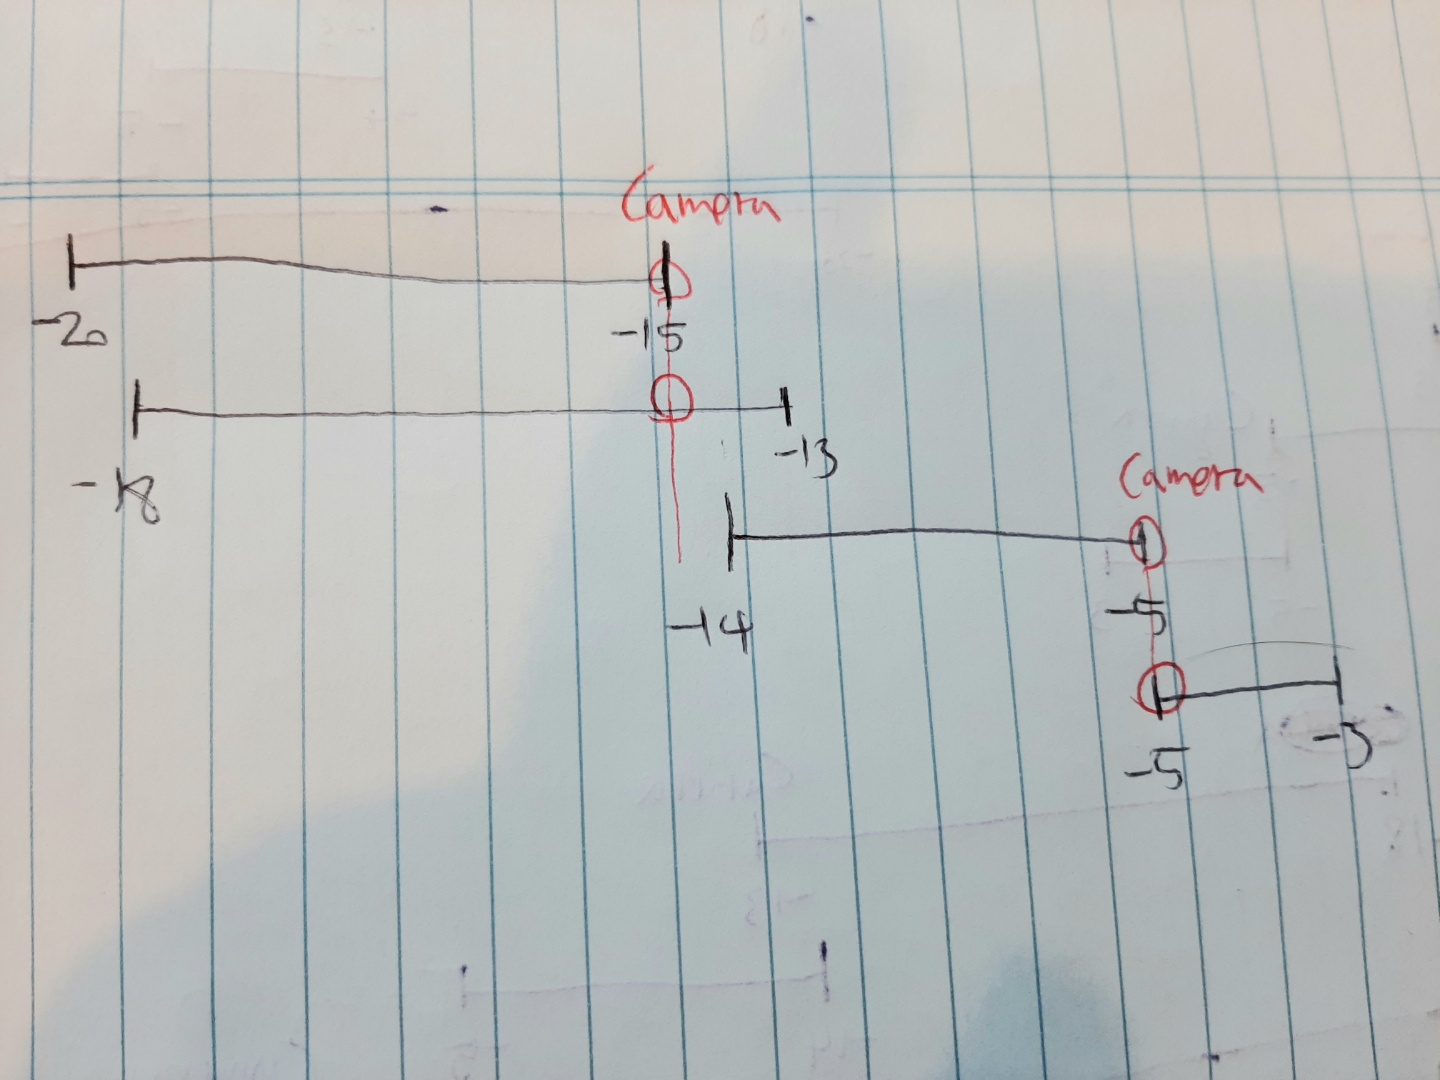 Camera
-20 -15
-18 -13
Camera
-14 -5
-5 -3